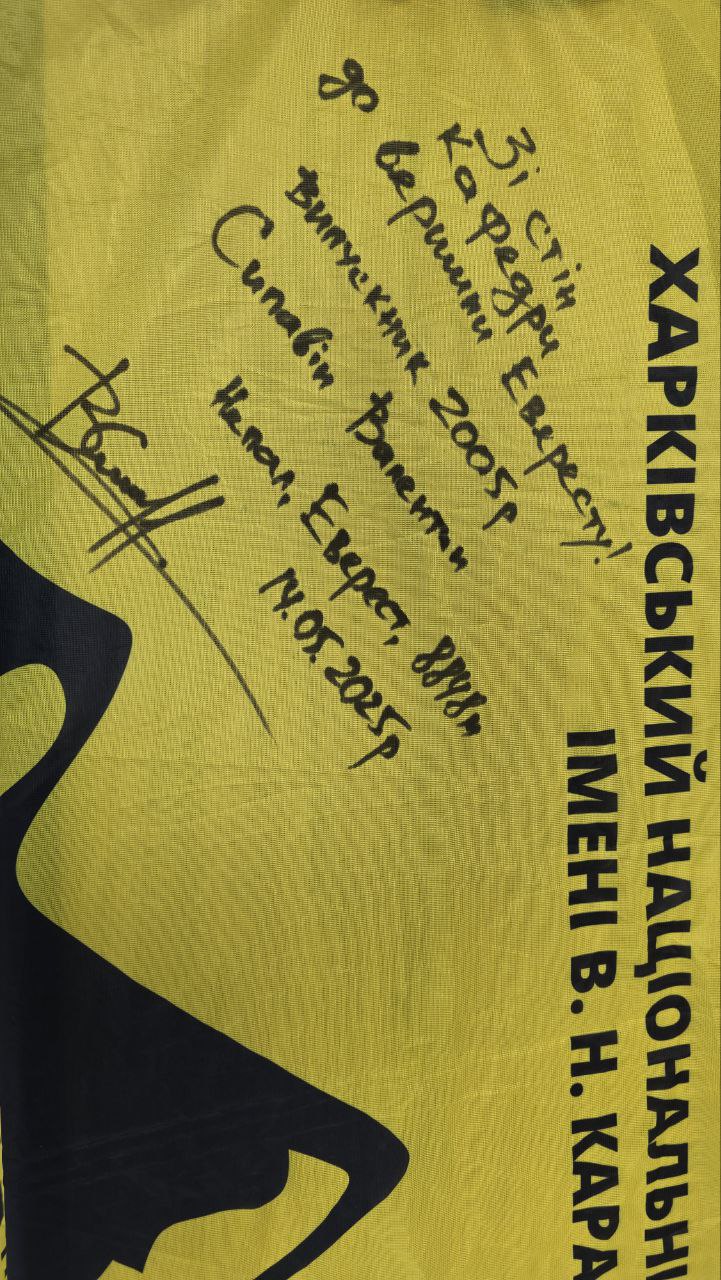 ХАРКІВСЬКИЙ НАЦІОНАЛЬНИ
ІМЕНІ В. Н. КАРА
Зі стін
кафедри
до вершини Евересту!
Випускник 2005р
Сипавін Валентин
Непал, Еверест, 8848м
14.05.2025р